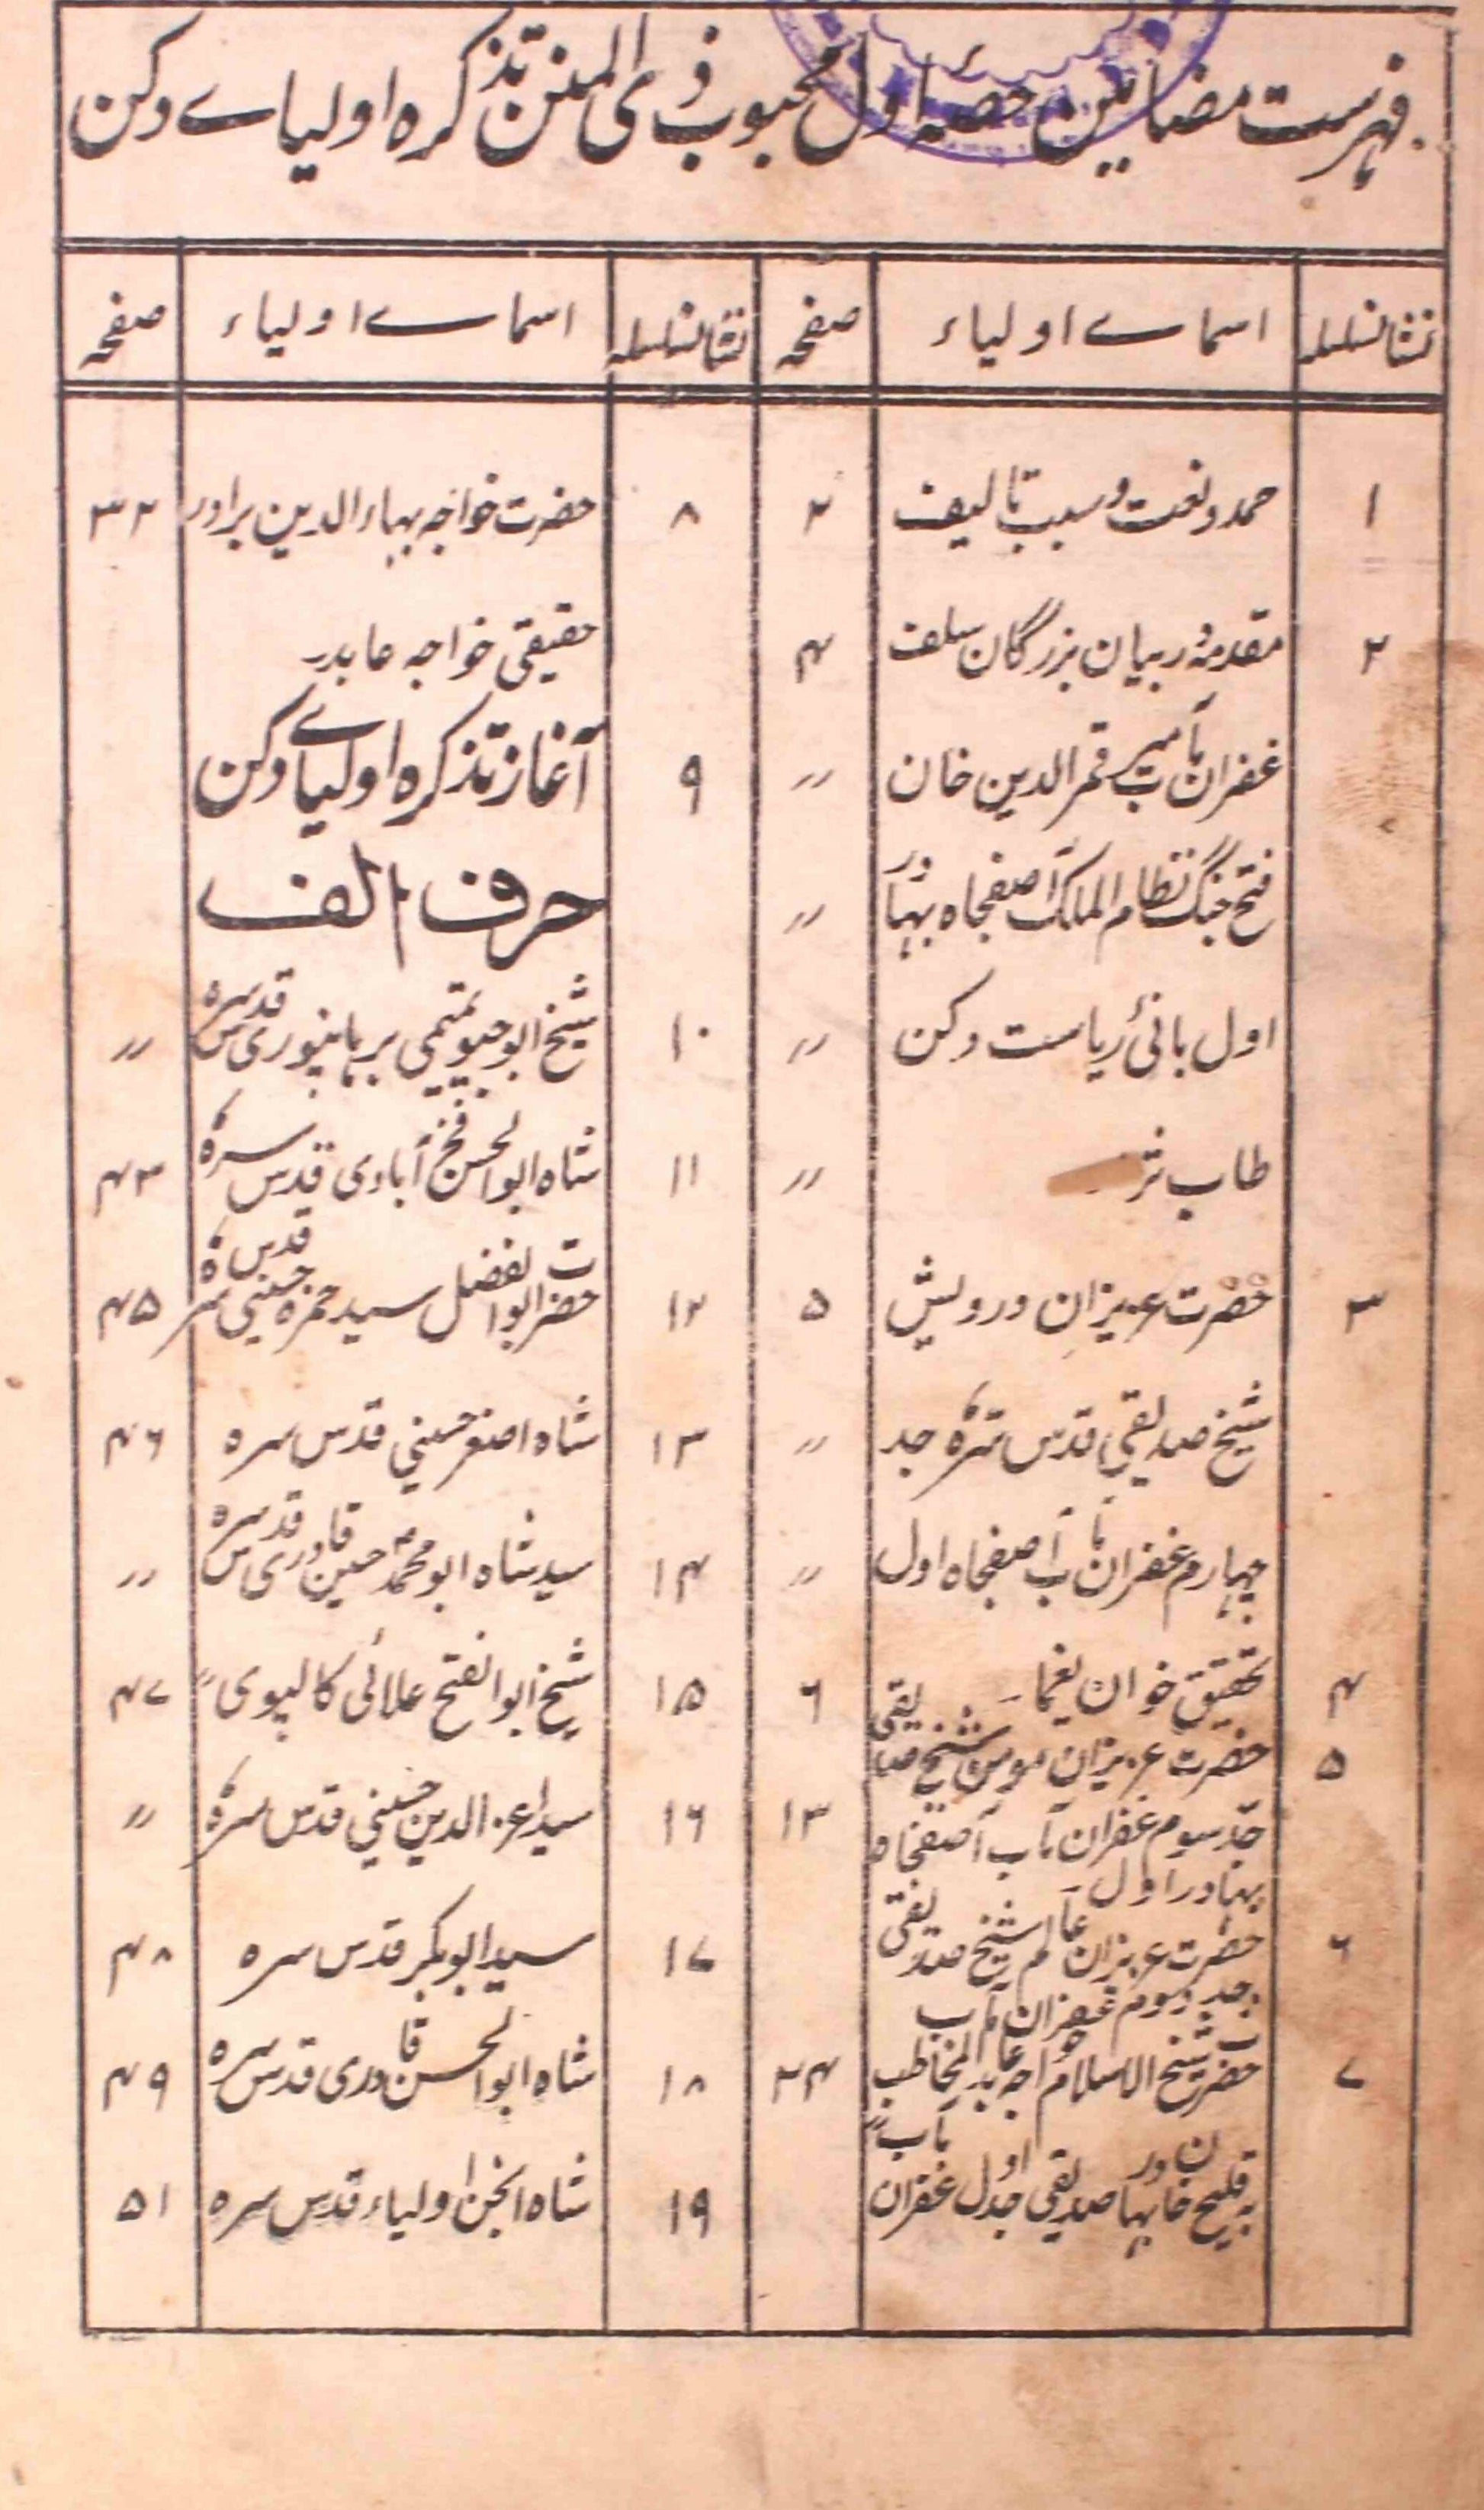 فہرست مضامین حصۂ اول محبوب ذی المنن تذکرہ اولیاے دکن
نشان سلسلہ اسماے اولیاء صفحہ
۱ حمد و نعت و سبب تالیف ۲
۲ مقدمہ در بیان بزرگان سلف ۴
غفران مآب میر قمر الدین خان 〃
فتح جنگ نظام الملک آصفجاہ بہادر 〃
اول بانیٔ ریاست دکن 〃
طاب 〃
۳ حضرت عزیزان درویش ۵
شیخ صدیقی قدس سرہ جد 〃
چہارم غفران مآب آصفجاہ اول 〃
۴ تحقیق خوان یغما۔ ۶
۵ حضرت عزیزان مومن شیخ صدیقی
جد سوم غفران مآب آصفجاہ ۱۳
بہادر اول۔
۶ حضرت عزیزان عالم شیخ صدیقی
جد دوم غفران مآب
۷ حضرت شیخ الاسلام خواجہ عابد المخاطب ۲۴
بہ قلیچ خان بہادر صدیقی جد اول غفران مآب
نشان سلسلہ اسماے اولیاء صفحہ
۸ حضرت خواجہ بہاء الدین برادر ۳۲
حقیقی خواجہ عابد۔
۹ آغاز تذکرہ اولیاے دکن
حرف الف
۱۰ شیخ ابو جیو تمیمی برہانپوری قدس سرہ 〃
۱۱ شاہ ابو الحسن فخر آبادی قدس سرہ ۴۳
۱۲ حضرت ابو الفضل سید حمزہ حسینی قدس سرہ ۴۵
۱۳ شاہ اصغر حسینی قدس سرہ ۴۶
۱۴ سید شاہ ابو محمد حسین قادری قدس سرہ 〃
۱۵ شیخ ابو الفتح علائی کالپوی 〃 ۴۷
۱۶ سید اعز الدین حسینی قدس سرہ 〃
۱۷ سید ابوبکر قدس سرہ ۴۸
۱۸ شاہ ابو الحسن قادری قدس سرہ ۴۹
۱۹ شاہ انجن اولیاء قدس سرہ ۵۱